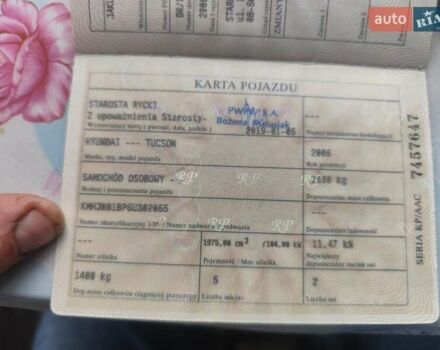 auto RIA
JAKU
200
STAR
08-5
ZMIANY
KARTA POJAZDU
STAROSTA RYCKI
Z upoważnienia Starosty- PWPW S.A.
Bożena
Wystawiający kartę ( pieczęć, data, podpis ) 2019-01-05
---
Numer świadectwa homologacji
HYUNDAI --- TUCSON
2006
Marka, typ, model pojazdu
Rok produkcji
SAMOCHÓD OSOBOWY ---
kg
Rodzaj i przeznaczenie pojazdu
Dopuszczalna masa całkowita
RP RP
---
Numer identyfikacyjny VIP / Numer nadwozia / podwozia
RP RP
---
1975,00 cm³ /104,00 kW
11,47 kN
Numer silnika
Pojemność / Moc silnika
Największy dopuszczalny nacisk osi
1400 kg
5
2
Dop.masa całkowita ciągniętej przyczepy
Liczba miejsc
Liczba osi
SERIA KP/AAC 7457647